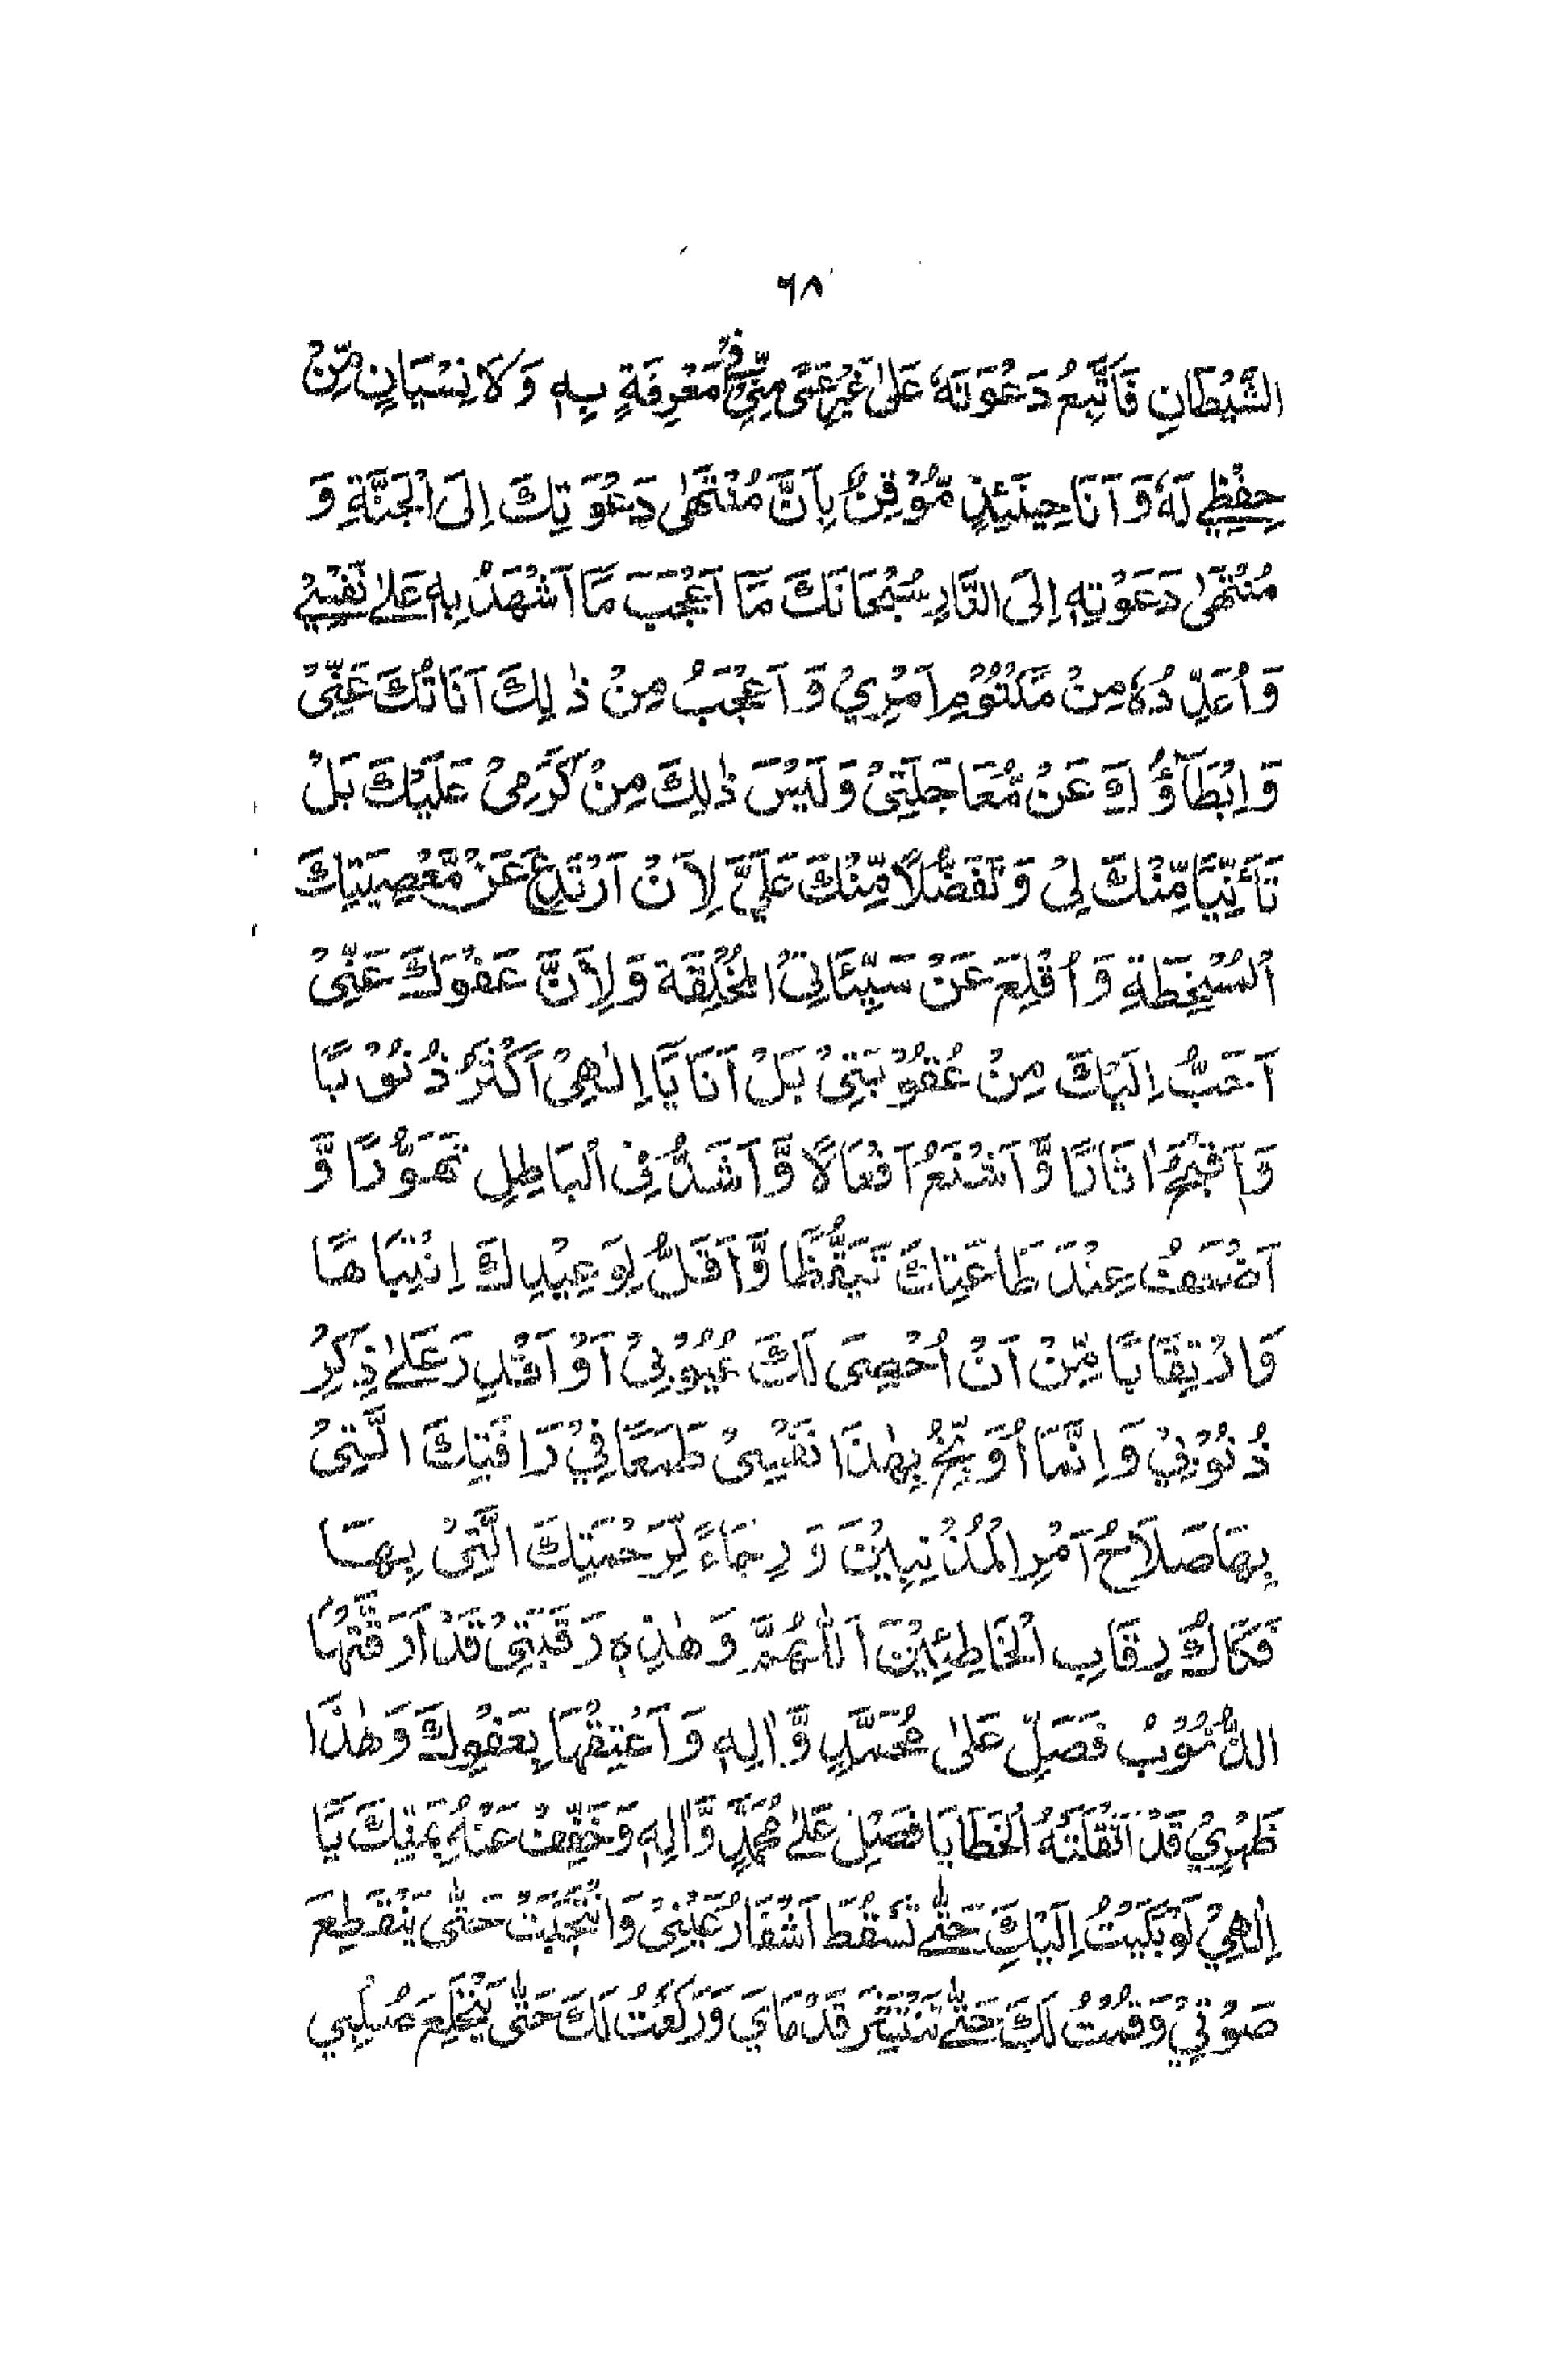 ٦٨
الشَّيْطَانِ فَاَتَّبِعُ دَعْوَتَهٗ عَلٰى غَيْرِ عَمًى مِّنِّيْ فِيْ مَعْرِفَةٍ بِهٖ وَلَا نِسْيَانٍ مِّنْ
حِفْظِيْ لَهٗ وَ اَنَا حِيْنَئِذٍ مُّوْقِنٌ بِاَنَّ مُنْتَهٰى دَعْوَتِكَ اِلَى الْجَنَّةِ وَ
مُنْتَهٰى دَعْوَتِهٖ اِلَى النَّارِ سُبْحَانَكَ مَا اَعْجَبَ مَا اَشْهَدُ بِهٖ عَلٰى نَفْسِيْ
وَ اُعَدِّدُهٗ مِنْ مَّكْتُوْمِ اَمْرِيْ وَ اَعْجَبُ مِنْ ذٰلِكَ اَنَاتُكَ عَنِّيْ
وَ اِبْطَآؤُكَ عَنْ مُّعَاجَلَتِيْ وَلَيْسَ ذٰلِكَ مِنْ كَرَمِيْ عَلَيْكَ بَلْ
تَاَنِّيًا مِّنْكَ لِيْ وَ تَفَضُّلًا مِّنْكَ عَلَيَّ لِاَنْ اَرْتَدِعَ عَنْ مَّعْصِيَتِكَ
الْمُسْخِطَةِ وَ اُقْلِعَ عَنْ سَيِّئَاتِيَ الْمُخْلِقَةِ وَ لِاَنَّ عَفْوَكَ عَنِّيْ
اَحَبُّ اِلَيْكَ مِنْ عُقُوْبَتِيْ بَلْ اَنَا يَا اِلٰهِيْ اَكْثَرُ ذُنُوْبًا
وَ اَقْبَحُ اٰثَارًا وَّ اَشْنَعُ اَفْعَالًا وَّ اَشَدُّ فِي الْبَاطِلِ تَهَوُّرًا وَّ
اَضْعَفُ عِنْدَ طَاعَتِكَ تَيَقُّظًا وَّ اَقَلُّ لِوَعِيْدِكَ اِنْتِبَاهًا
وَارْتِقَابًا مِّنْ اَنْ اُحْصِيَ لَكَ عُيُوْبِيْ اَوْ اَقْدِرَ عَلٰى ذِكْرِ
ذُنُوْبِيْ وَ اِنَّمَا اُوَبِّخُ بِهٰذَا نَفْسِيْ طَمَعًا فِيْ رَافَتِكَ الَّتِيْ
بِهَا صَلَاحُ اَمْرِ الْمُذْنِبِيْنَ وَ رِجَاءً لِّرَحْمَتِكَ الَّتِيْ بِهَا
فَكَاكُ رِقَابِ الْخَاطِئِيْنَ اَللّٰهُمَّ وَ هٰذِهٖ رَقَبَتِيْ قَدْ اَرَقَّتْهَا
الذُّنُوْبُ فَصَلِّ عَلٰى مُحَمَّدٍ وَّ اٰلِهٖ وَ اَعْتِقْهَا بِعَفْوِكَ وَ هٰذَا
ظَهْرِيْ قَدْ اَثْقَلَتْهُ الْخَطَايَا فَصَلِّ عَلٰى مُحَمَّدٍ وَّ اٰلِهٖ وَ خَفِّفْ عَنْهُ بِمَنِّكَ يَا
اِلٰهِيْ لَوْ بَكَيْتُ اِلَيْكَ حَتّٰى تَسْقُطَ اَشْفَارُ عَيْنِيْ وَ انْتَحَبْتُ حَتّٰى يَنْقَطِعَ
صَوْتِيْ وَ قُمْتُ لَكَ حَتّٰى تَنْتَشِرَ قَدَمَايَ وَ رَكَعْتُ لَكَ حَتّٰى يَنْخَلِعَ صُلْبِيْ